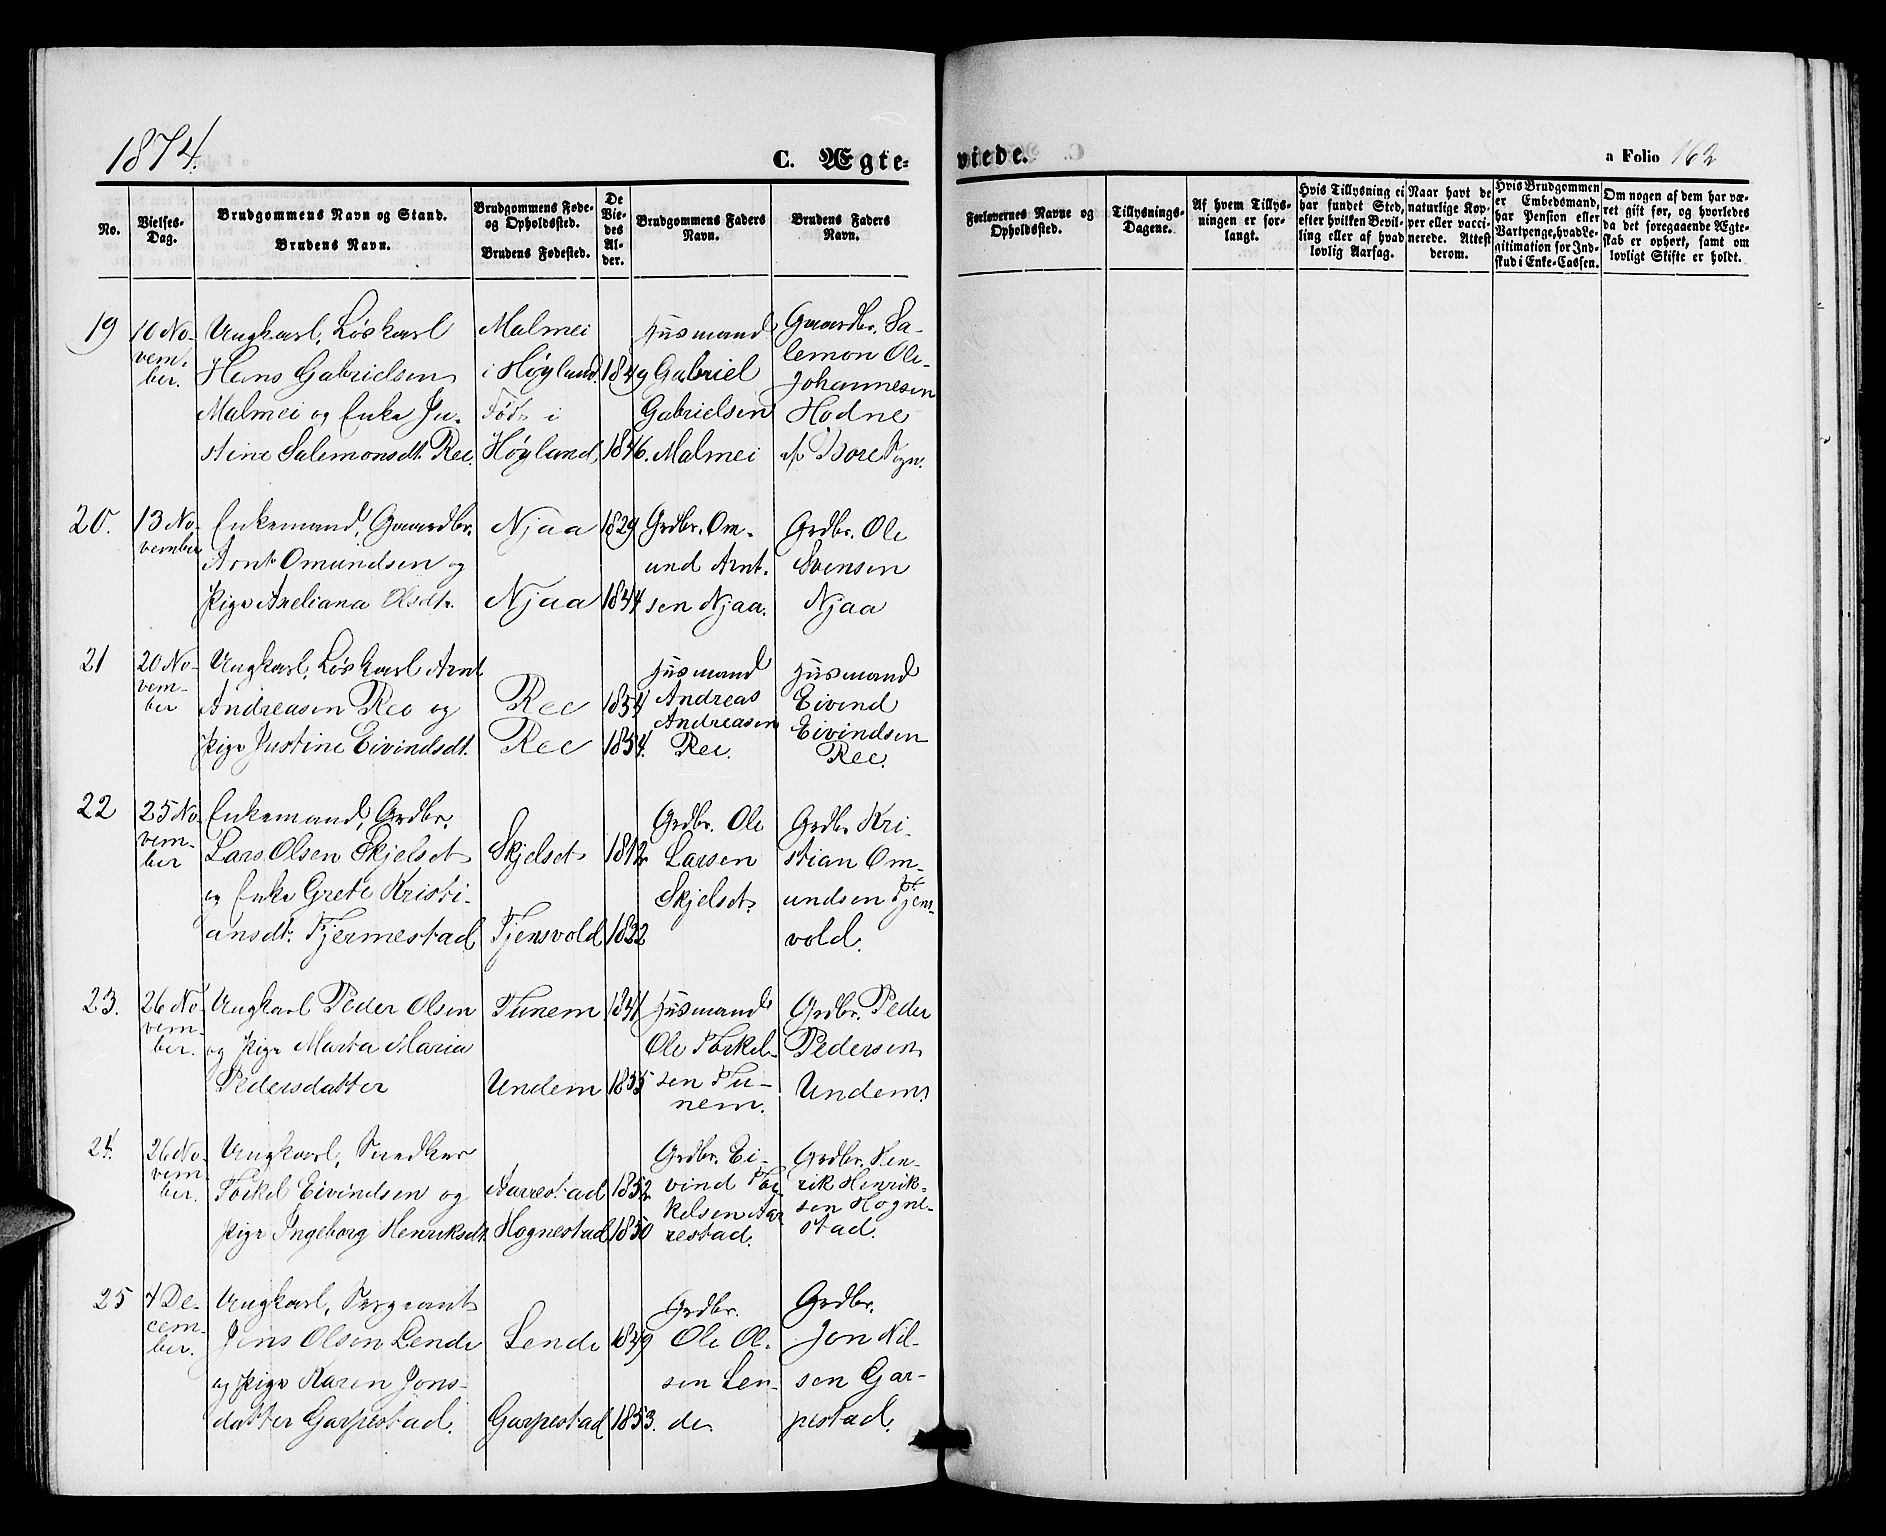 1874.
C. Ægte-
viede.
a Folio 162
No.
Vielses-
Dag.
Brudgommens Navn og Stand.
Brudens Navn.
Brudgommens Føde-
og Opholdssted.
Brudens Fødested.
De
Vie-
des
Al-
der.
Brudgommens Faders
Navn.
Brudens Faders
Navn.
Forlovernes Navne og
Opholdssted.
Tillysnings-
Dagene.
Af hvem Tillys-
ningen er for-
langt.
Hvis Tillysning ei
har fundet Sted,
efter hvilken Bevil-
ling eller af hvad
lovlig Aarsag.
Naar havt de
naturlige Kop-
per eller vacci-
nerede. Attest
derom.
Hvis Brudgommen
er Embedsmand,
har Pension eller
Vartpenge, hvad Le-
gitimation for Ind-
skud i Enke-Cassen.
Om nogen af dem har væ-
ret gift før, og hvorledes
da det foregaaende Ægte-
skab er ophørt, samt om
lovligt Skifte er holdt.
19
10 No-
vem-
ber.
Ungkarl, Løskarl
Hans Gabrielsen
Malmei og Enke Ju-
stine Salemonsdt. Ree.
Malmei
i Høyland.
Født i
Høyland
1849
1846.
Husmand
Gabriel
Gabrielsen
Malmei
Gaardbr. Sa-
lemon Ole-
Johannesen
Hodne
af Bore Sogn.
20.
13 No-
vember
Enkemand, Gaardbr.
Arnt Omundsen og
Pige Axeliana Olsdt.
Njaa
Njaa
1829
1844
Grdbr. Om-
und Arnt-
sen Njaa.
Grdbr. Ole
Svensen
Njaa
21
20 No-
vem-
ber
Ungkarl, Løskarl Arnt
Andreasen Ree og
Pige Justine Eivindsdt.
Ree
Ree
1854
1854.
Husmand
Andreas
Andreasen
Ree.
Husmand
Eivind
Eivindsen
Ree.
22
25 No-
vem-
ber
Enkemand, Grdbr.
Lars Olsen Skjelset
og Enke Grete Kristi-
ansdt. Fjermestad
Skjelset
Tjensvold
1812
1822
Grdbr. Ole
Larsen
Skjelset.
Grdbr Kri-
stian Om-
undsen Tjens-
vold.
23.
26 No-
vem-
ber.
Ungkarl Peder Olsen
og Pige Marta Maria
Pedersdatter
Tunem
Undem
1841
1855
Husmand
Ole Torkel-
sen Tu-
nem.
Grdbr. Peder
Pedersen
Undem.
24.
26 No-
vem-
ber.
Ungkarl, Snedker
Torkel Eivindsen og
Pige Ingeborg Henriksdt.
Aarrestad
Hognestad
1852
1850
Grdbr. Ei-
vind Tor-
kelsen Aar-
restad.
Grdbr. Hen-
rik Henrik-
sen Hogne-
stad.
25
4 De-
cem-
ber.
Ungkarl, Sergeant
Jens Olsen Lende
og Pige Karen Jons-
datter Garpestad.
Lende
Garpestad
1849
1853.
Grdbr.
Ole Ol-
sen Len-
de.
Grdbr.
Jon Nil-
sen Gar-
pestad.